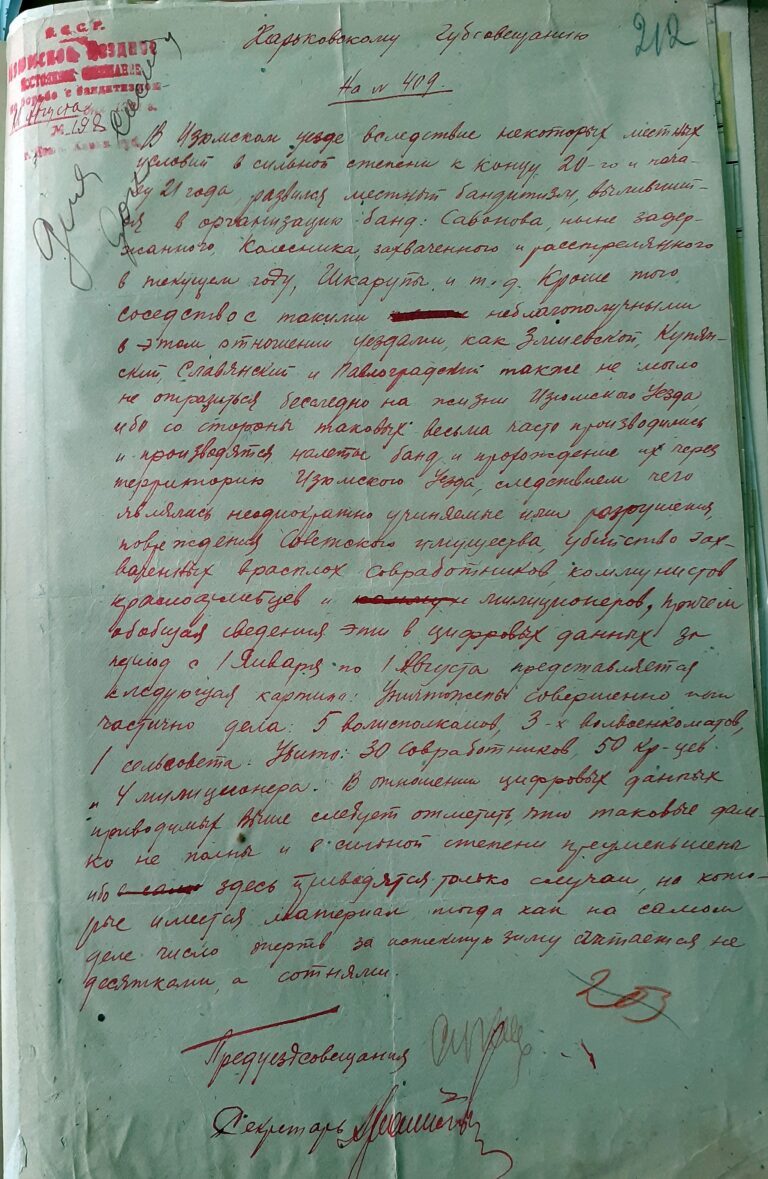 Харьковскому Губсовещанию
212
На № 409.
У.С.С.Р.
ИЗЮМСКОЕ УЕЗДНОЕ
ПОСТОЯННОЕ СОВЕЩАНИЕ
по борьбе с бандитизмом
11 Августа
№ 198
В Изюмском уезде вследствие некоторых местных
условий в сильной степени к концу 20-го и нача-
лу 21 года развился местный бандитизм, выливший-
ся в организацию банд: Савонова, ныне задер-
жанного, Колесника, захваченного и расстрелянного
в текущем году, Шкарупы и т.д. Кроме того
соседство с такими неблагополучными
в этом отношении уездами, как Змиевской, Купян-
ский, Славянский и Павлоградский также не могло
не отразиться бесследно на жизни Изюмского Уезда,
ибо со стороны таковых весьма часто производились
и производятся налеты банд и прохождение их через
территорию Изюмского Уезда, следствием чего
являлась неоднократно учиняемые ими разрушения,
повреждения Советского имущества, убийство зах-
ваченных врасплох совработников, коммунистов
красноармейцев и милиционеров, причем
обобщая сведения эти в цифровых данных за
период с 1 Января по 1 Августа представляется
следующая картина: Уничтожены совершенно или
частично дела: 5 волисполкомов, 3-х волвоенкоматов,
1 сельсовета. Убито: 30 совработников, 50 кр-цев
" 4 милиционера. В отношении цифровых данных
приводимых выше следует отметить, что таковые дале-
ко не полны и в сильной степени преуменьшены
ибо здесь приводятся только случаи, на кото-
рые имеется материал тогда как на самом
деле число жертв за истекшую зиму считается не
десятками, а сотнями.
203
Предуездсовещания
Секретарь